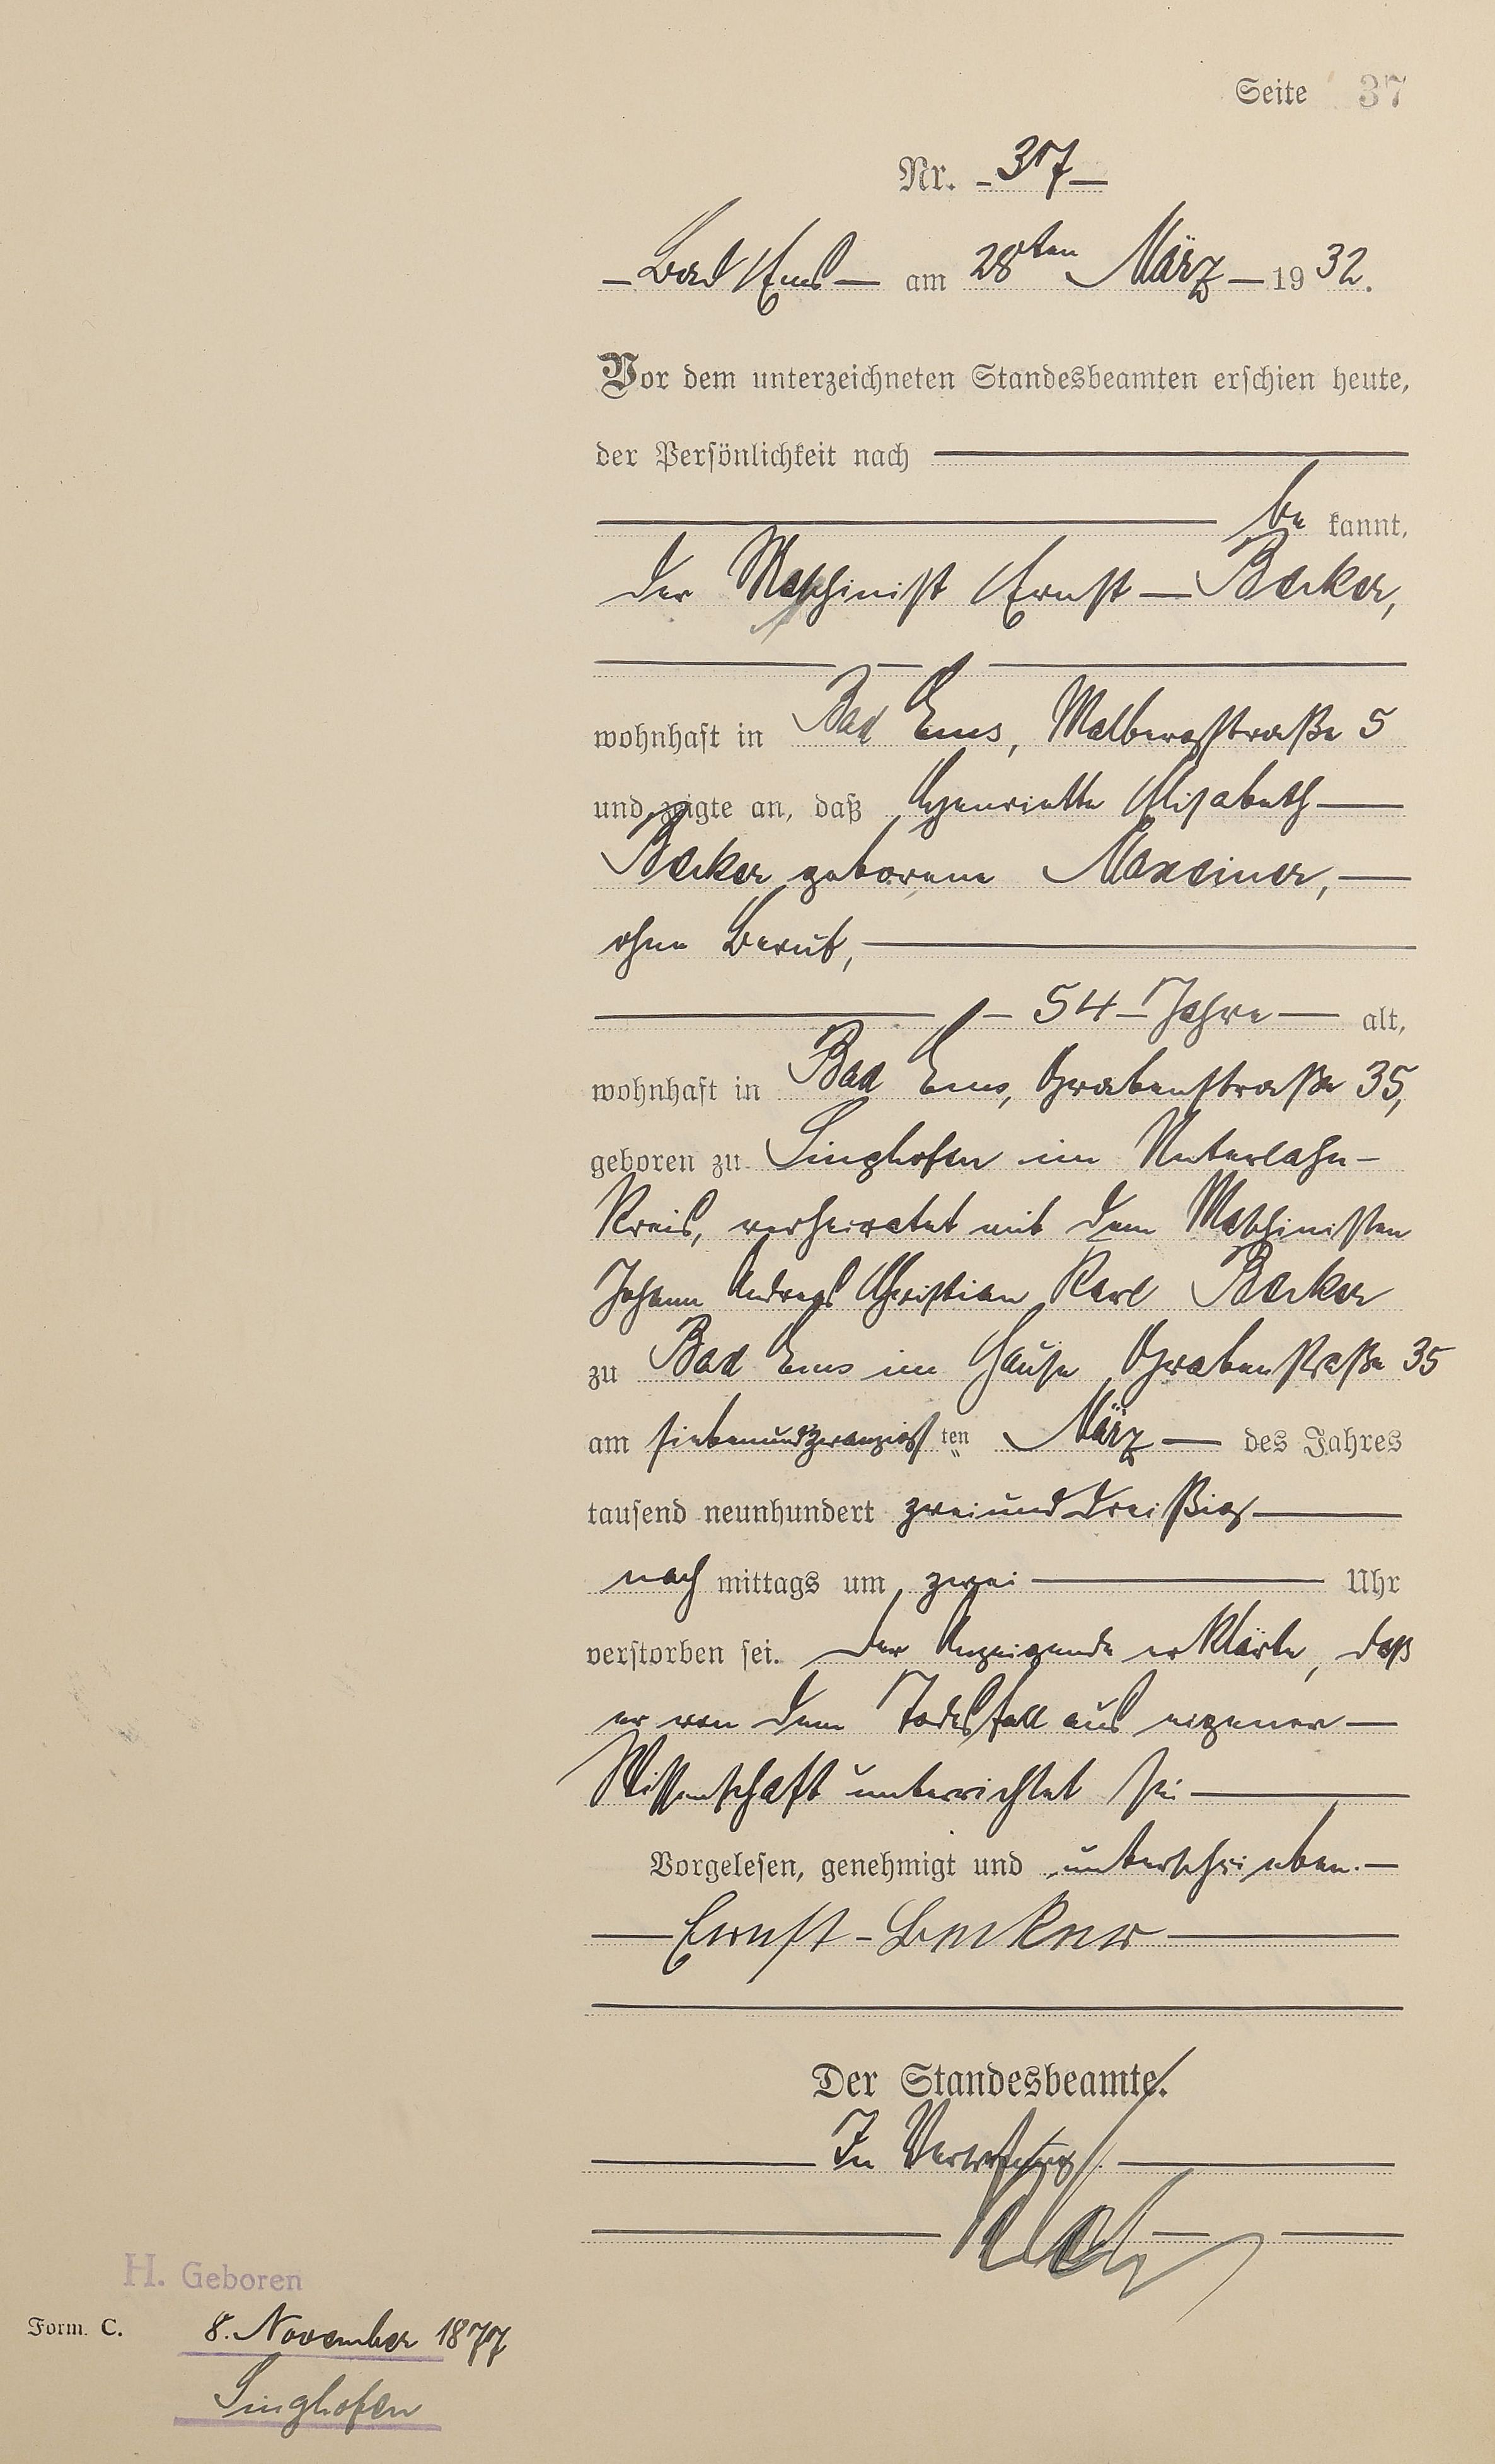 Seite 37
Nr. 37
Bad Ems am 28ten März 1932.
Vor dem unterzeichneten Standesbeamten erschien heute,
der Persönlichkeit nach
be kannt,
der Maschinist Ernst Becker,
wohnhaft in Bad Ems, Malbergstraße 5
und zeigte an, daß Henriette Elisabeth
Becker geborene Maxeiner,
ohne Beruf,
54 Jahre alt,
wohnhaft in Bad Ems, Grabenstraße 35,
geboren zu Singhofen im Unterlahn-
Kreis, verheiratet mit dem Maschinisten
Johann Andreas Christian Karl Becker
zu Bad Ems im Hause Grabenstraße 35
am siebenundzwanzigsten März des Jahres
tausend neunhundert zweiunddreißig
nach mittags um zwei Uhr
verstorben sei. Der Anzeigende erklärte, daß
er von dem Todesfall aus eigener
Wissenschaft unterrichtet sei
Vorgelesen, genehmigt und unterschrieben.
Ernst Becker
Der Standesbeamte.
In Vertretung
H. Geboren
Form. C. 8. November 1877
Singhofen